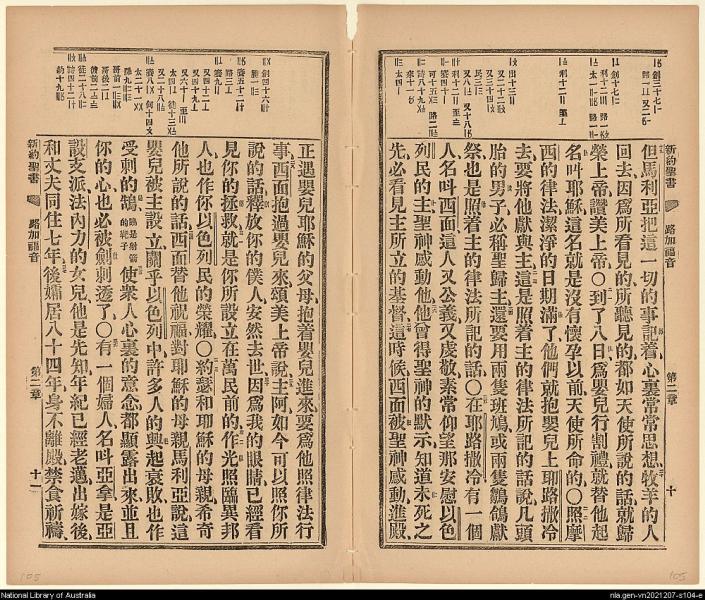 新約聖書 路加福音 第二章 十
但馬利亞把這一切的事記着心裏常常思想牧羊的人
回去因爲所看見的所聽見的都如天使所說的話就歸
榮上帝讚美上帝○到了八日爲嬰兒行割禮就替他起
名叫耶穌這名就是沒有懷孕以前天使所命的○照摩
西的律法潔淨的日期滿了他們就抱嬰兒上耶路撒冷
去要將他獻與主這是照着主的律法所記的話說凡頭
胎的男子必稱聖歸主還要用兩隻班鳩或兩隻鶵鴿獻
祭也是照着主的律法所記的話○在耶路撒冷有一個
人名叫西面這人又公義又虔敬素常仰望那安慰以色
列民的主聖神感動他他曾得聖神的默示知道未死之
先必看見主所立的基督這時候西面被聖神感動進殿
正遇嬰兒耶穌的父母抱着嬰兒進來要爲他照律法行
事西面抱過嬰兒來頌美上帝說主阿如今可以照你所
說的話釋放你的僕人安然去世因爲我的眼睛已經看
見你的拯救就是你所設立在萬民前的作光照臨異邦
人也作你以色列民的榮耀○約瑟和耶穌的母親希奇
他所說的話西面替他祝福對耶穌的母親馬利亞說這
嬰兒被主設立關乎以色列中許多人的興起衰敗也作
受刺的鵠鵠是射箭的靶子使衆人心裏的意念都顯露出來並且
你的心也必被劍刺透了○有一個婦人名叫亞拿是亞
設支派法內力的女兒他是先知年紀已經老邁出嫁後
和丈夫同住七年後孀居八十四年身不離殿禁食祈禱
新約聖書 路加福音 第二章 十一
105
105
National Library of Australia
nla.gen-vn2021207-s104-e